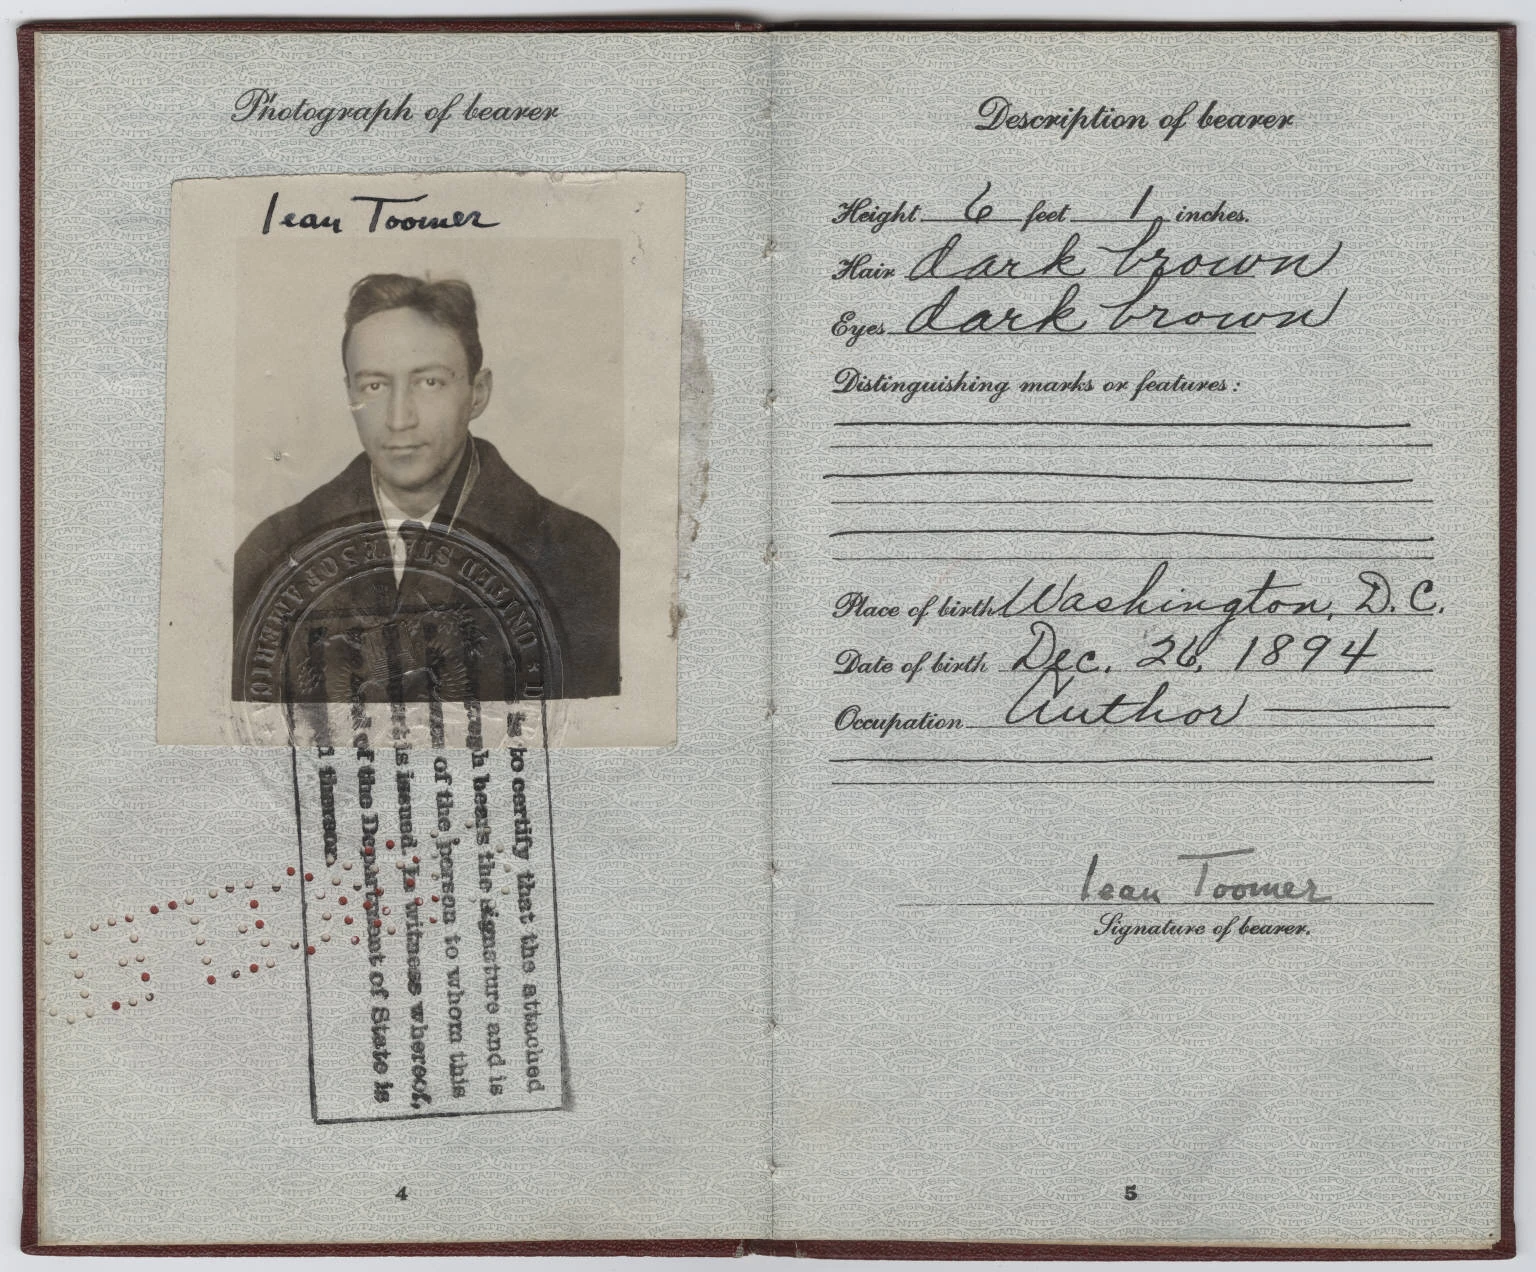 Photograph of bearer
Jean Toomer
UNITED STATES OF AMERICA
is to certify that the attached
bears the signature and is
of the person to whom this
is issued. In witness whereof,
of the Department of State is
thereon
4
Description of bearer
Height 6 feet 1 inches.
Hair dark brown
Eyes dark brown
Distinguishing marks or features:
Place of birth Washington, D.C.
Date of birth Dec. 26, 1894
Occupation Author
Jean Toomer
Signature of bearer.
5